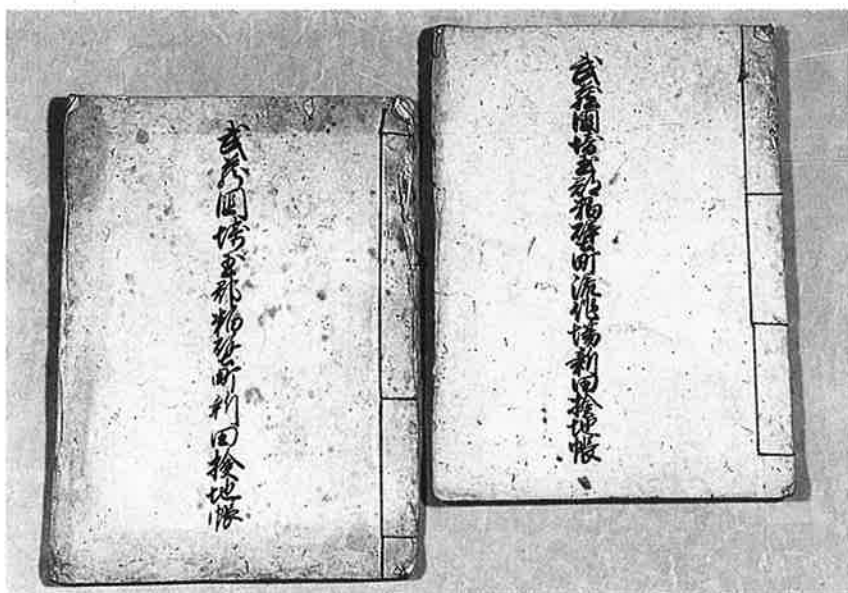 武蔵国埼玉郡粕壁町流作場新田検地帳
武蔵国埼玉郡粕壁町新田検地帳